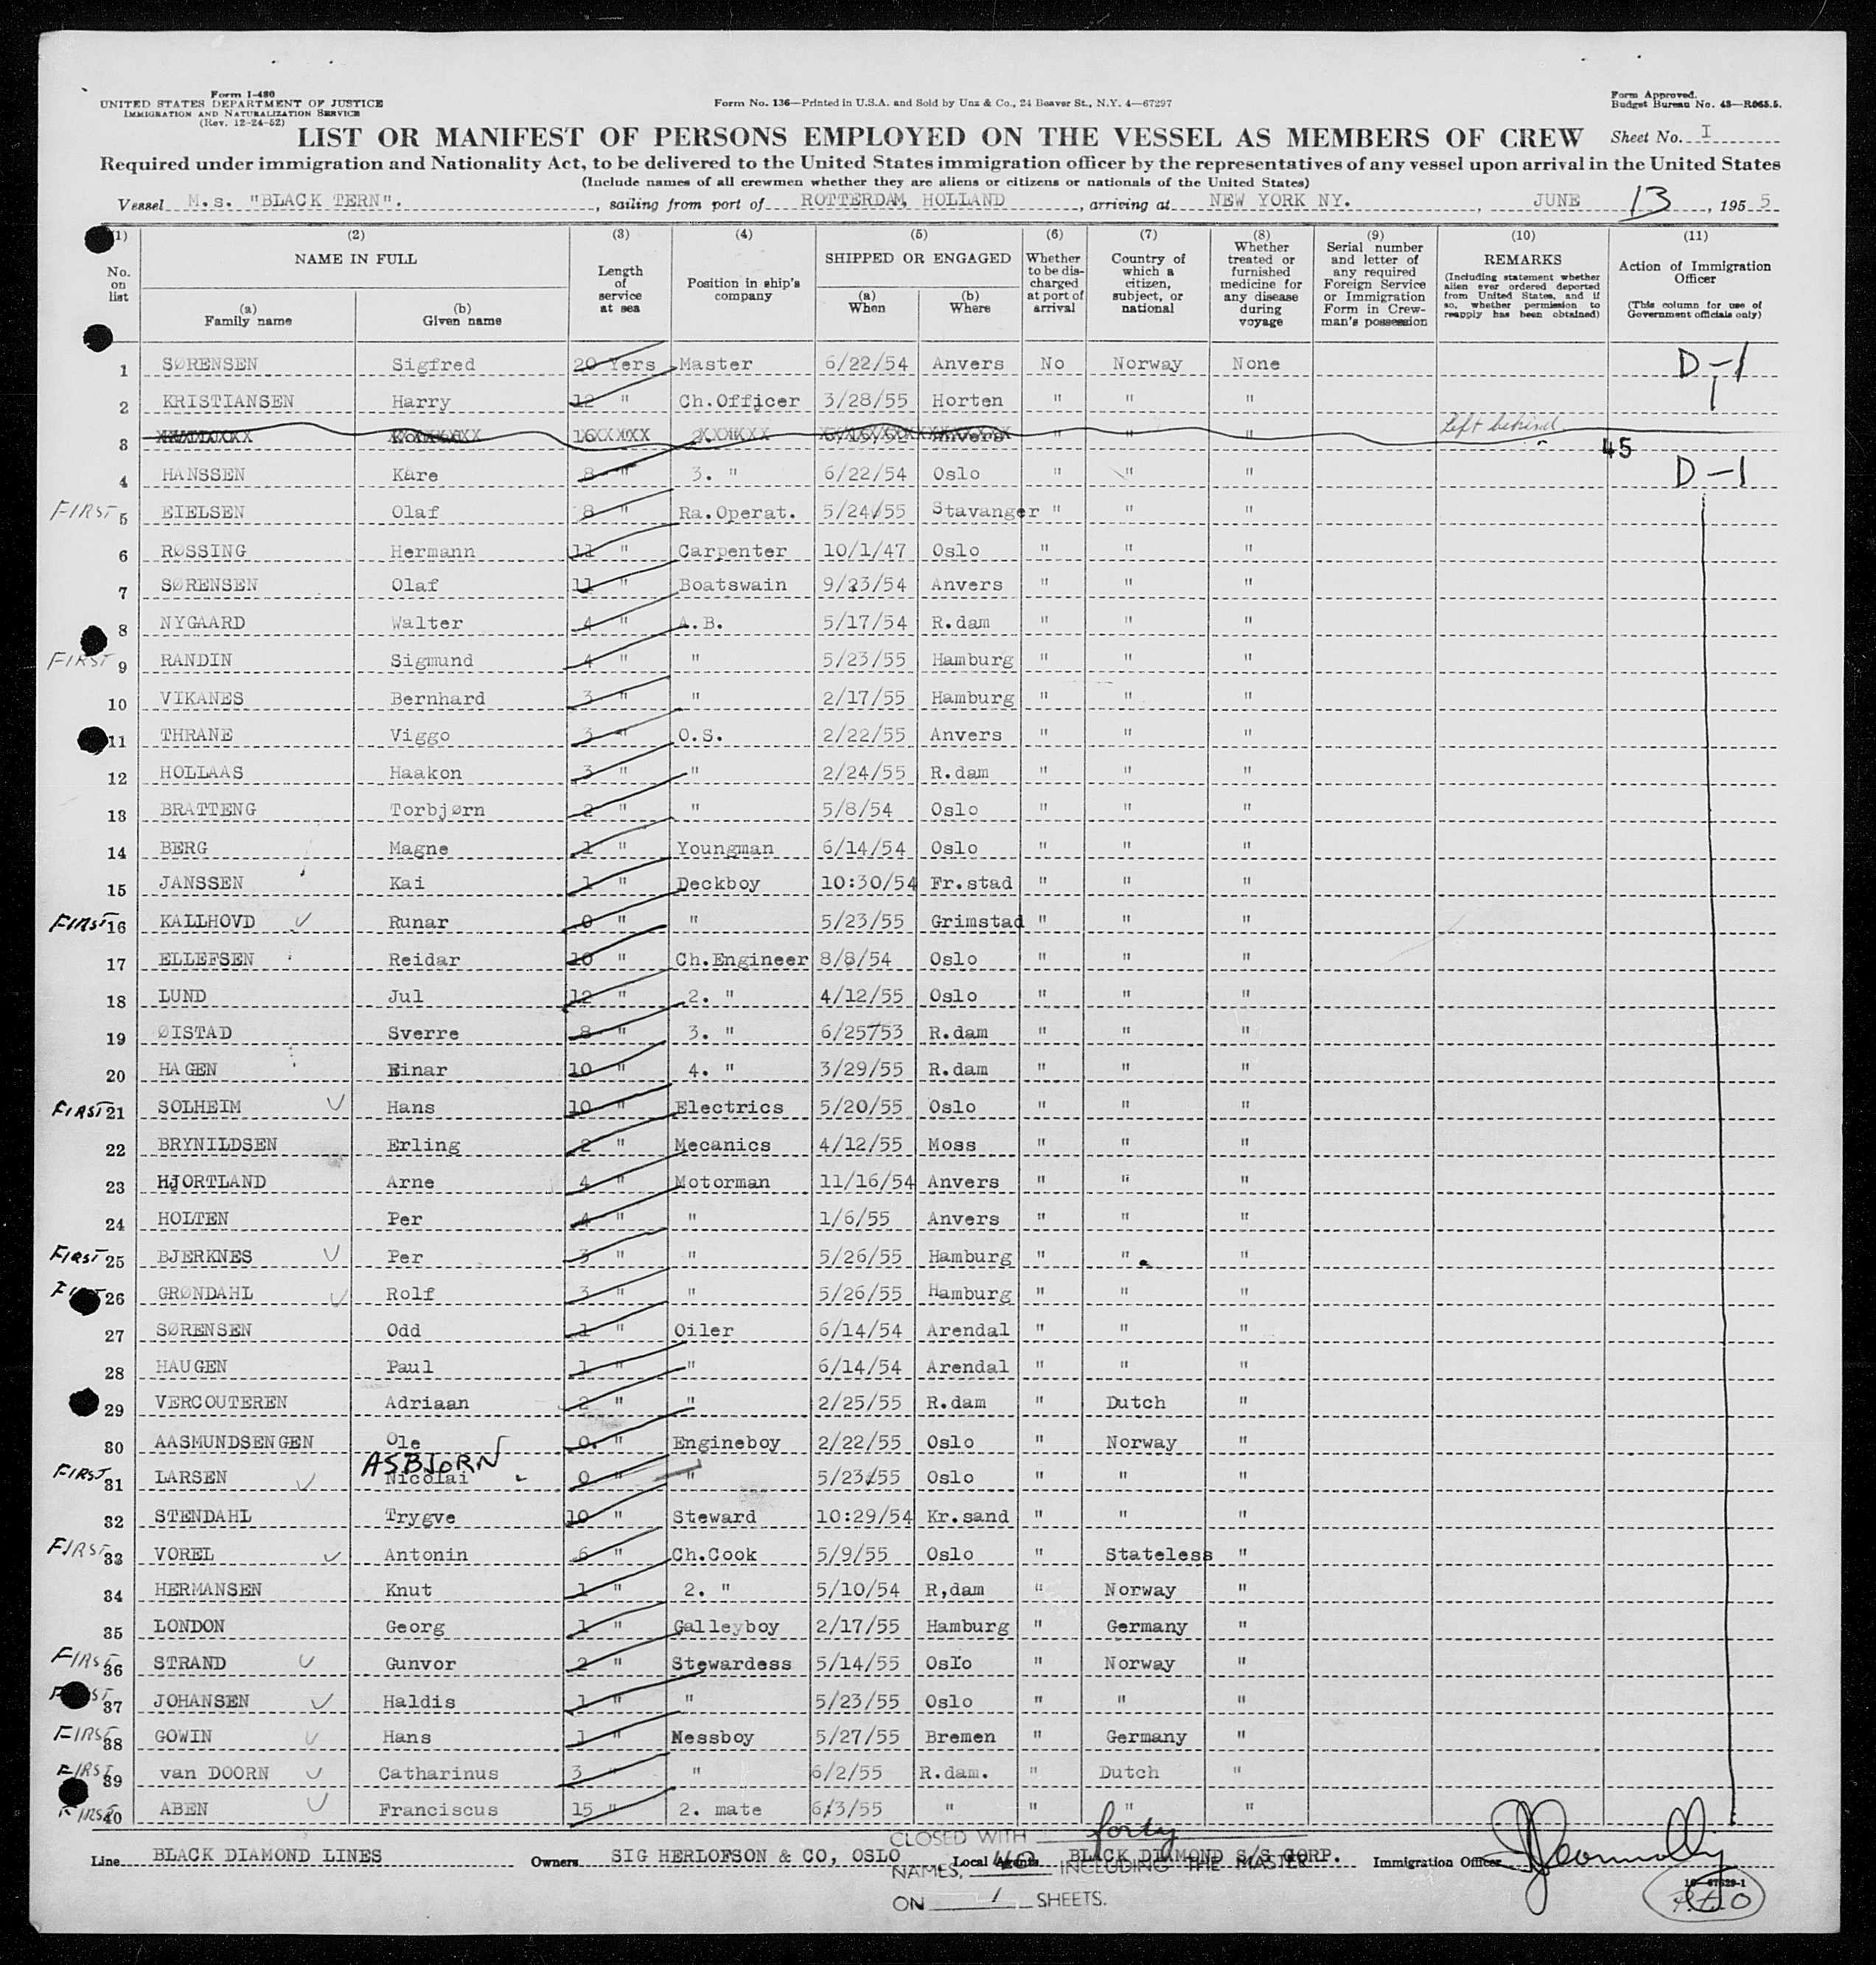 Form I-480
UNITED STATES DEPARTMENT OF JUSTICE
IMMIGRATION AND NATURALIZATION SERVICE
(Rev. 12-24-52)
Form No. 136—Printed in U.S.A. and Sold by Unz & Co., 24 Beaver St., N.Y. 4—67297
Form Approved.
Budget Bureau No. 43—R065.5.
LIST OR MANIFEST OF PERSONS EMPLOYED ON THE VESSEL AS MEMBERS OF CREW Sheet No. I
Required under immigration and Nationality Act, to be delivered to the United States immigration officer by the representatives of any vessel upon arrival in the United States
(Include names of all crewmen whether they are aliens or citizens or nationals of the United States)
Vessel M.s. "BLACK TERN"., sailing from port of ROTTERDAM, HOLLAND, arriving at NEW YORK NY., JUNE 13, 1955
(1) No. on list
(2) NAME IN FULL
(a) Family name
(b) Given name
(3) Length of service at sea
(4) Position in ship's company
(5) SHIPPED OR ENGAGED
(a) When
(b) Where
(6) Whether to be discharged at port of arrival
(7) Country of which a citizen, subject, or national
(8) Whether treated or furnished medicine for any disease during voyage
(9) Serial number and letter of any required Foreign Service or Immigration Form in Crewman's possession
(10) REMARKS (Including statement whether alien ever ordered deported from United States, and if so, whether permission to reapply has been obtained)
(11) Action of Immigration Officer (This column for use of Government officials only)
1 SØRENSEN Sigfred 20 Yers Master 6/22/54 Anvers No Norway None D-1
2 KRISTIANSEN Harry 12 " Ch.Officer 3/28/55 Horten " " "
3 16 " " " left behind
45
4 HANSSEN Kåre 8 " 3. " 6/22/54 Oslo " " " D-1
FIRST 5 EIELSEN Olaf 8 " Ra.Operat. 5/24/55 Stavanger " " "
6 RØSSING Hermann 11 " Carpenter 10/1/47 Oslo " " "
7 SØRENSEN Olaf 11 " Boatswain 9/23/54 Anvers " " "
8 NYGAARD Walter 4 " A.B. 5/17/54 R.dam " " "
FIRST 9 RANDIN Sigmund 4 " " 5/23/55 Hamburg " " "
10 VIKANES Bernhard 3 " " 2/17/55 Hamburg " " "
11 THRANE Viggo 3 " O.S. 2/22/55 Anvers " " "
12 HOLLAAS Haakon 3 " " 2/24/55 R.dam " " "
13 BRATTENG Torbjørn 2 " " 5/8/54 Oslo " " "
14 BERG Magne 1 " Youngman 6/14/54 Oslo " " "
15 JANSSEN Kai 1 " Deckboy 10:30/54 Fr.stad " " "
FIRST 16 KALLHOVD Runar 0 " " 5/23/55 Grimstad " " "
17 ELLEFSEN Reidar 10 " Ch.Engineer 8/8/54 Oslo " " "
18 LUND Jul 12 " 2. " 4/12/55 Oslo " " "
19 ØISTAD Sverre 8 " 3. " 6/25/53 R.dam " " "
20 HAGEN Einar 10 " 4. " 3/29/55 R.dam " " "
FIRST 21 SOLHEIM Hans 10 " Electrics 5/20/55 Oslo " " "
22 BRYNILDSEN Erling 2 " Mecanics 4/12/55 Moss " " "
23 HJORTLAND Arne 4 " Motorman 11/16/54 Anvers " " "
24 HOLTEN Per 4 " " 1/6/55 Anvers " " "
FIRST 25 BJERKNES Per 3 " " 5/26/55 Hamburg " " "
26 GRØNDAHL Rolf 3 " " 5/26/55 Hamburg " " "
27 SØRENSEN Odd 1 " Oiler 6/14/54 Arendal " " "
28 HAUGEN Paul 1 " " 6/14/54 Arendal " " "
29 VERCOUTEREN Adriaan 2 " " 2/25/55 R.dam " Dutch "
30 AASMUNDSENGEN Ole 0. " Engineboy 2/22/55 Oslo " Norway "
ASBJORN
FIRST 31 LARSEN Nicolai 0 " " 5/23/55 Oslo " " "
32 STENDAHL Trygve 10 " Steward 10:29/54 Kr.sand " " "
FIRST 33 VOREL Antonin 6 " Ch.Cook 5/9/55 Oslo " Stateless "
34 HERMANSEN Knut 1 " 2. " 5/10/54 R,dam " Norway "
35 LONDON Georg 1 " Galleyboy 2/17/55 Hamburg " Germany "
FIRST 36 STRAND Gunvor 2 " Stewardess 5/14/55 Oslo " Norway "
37 JOHANSEN Haldis 1 " " 5/23/55 Oslo " " "
FIRST 38 GOWIN Hans 1 " Messboy 5/27/55 Bremen " Germany "
FIRST 39 van DOORN Catharinus 3 " " 6/2/55 R.dam. " Dutch "
FIRST 40 ABEN Franciscus 15 " 2. mate 6/3/55 " " " "
CLOSED WITH forty
Line BLACK DIAMOND LINES Owners SIG HERLOFSON & CO, OSLO Local Agents BLACK DIAMOND S/S CORP. Immigration Officer
NAMES, 40 INCLUDING THE MASTER
ON 1 SHEETS.